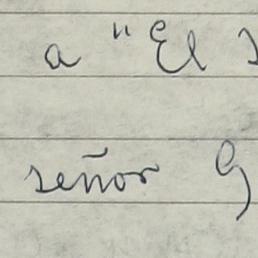 a "El
señor